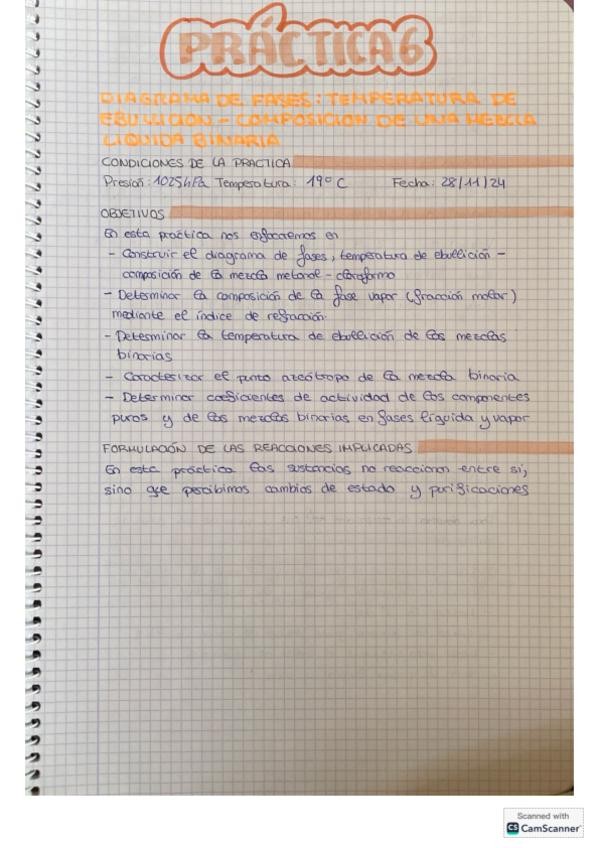 PRÁCTICA 6
DIAGRAMA DE FASES: TEMPERATURA DE
EBULLICIÓN - COMPOSICIÓN DE UNA MEZCLA
LÍQUIDA BINARIA
CONDICIONES DE LA PRACTICA
Presión: 1025hPa Temperatura: 19º C Fecha: 28/11/24
OBJETIVOS
En esta práctica nos enfocaremos en
- Construir el diagrama de fases, temperatura de ebullición -
composición de la mezcla metanol - cloroformo
- Determinar la composición de la fase vapor (fracción molar)
mediante el índice de refracción.
- Determinar la temperatura de ebullición de las mezclas
binarias
- Caracterizar el punto azeótropo de la mezcla binaria
- Determinar coeficientes de actividad de los componentes
puros y de las mezclas binarias en fases líquida y vapor
FORMULACIÓN DE LAS REACCIONES IMPLICADAS
En esta práctica las sustancias no reaccionan entre sí,
sino que percibimos cambios de estado y purificaciones
Scanned with
CS CamScanner